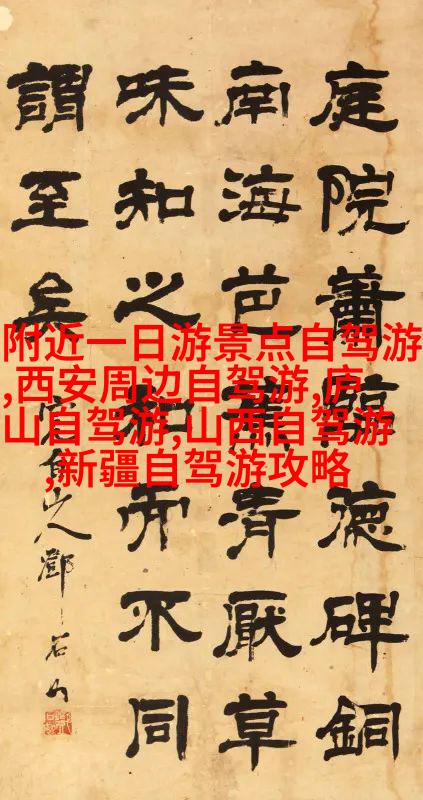 庭院蕭臨德碑銅
南海芭青厭草
味知之知而不同
謂至矣
完白山人鄧石如
附近一日游景点自驾游
,西安周边自驾游,庐
山自驾游,山西自驾游
,新疆自驾游攻略